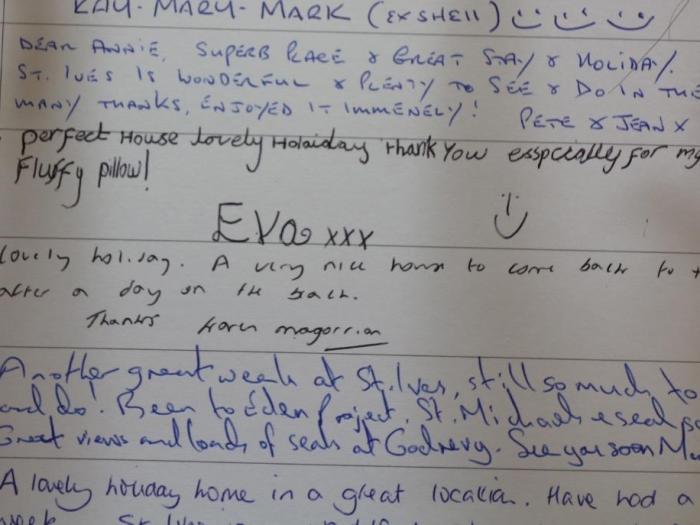 KAY-MARY-MARK (EX SHELL)
DEAR ANNIE, SUPERB PLACE & GREAT STAY & HOLIDAY.
ST. IVES IS WONDERFUL & PLENTY TO SEE & DO IN THE
MANY THANKS, ENJOYED IT IMMENELY! PETE & JEAN X
perfect House lovely Holaiday thank You esspcially for my
Fluffy pillow!
Eva xxx
lovely holiday. A very nice house to come back to
after a day on the beach.
Thanks from magorrian
Another great week at St. Ives, still so much to
and do! Been to Eden Project, St. Michaels & seal
Great views and loads of seals at Godrevy. See you soon
A lovely holiday home in a great location. Have had a
week St Ives is